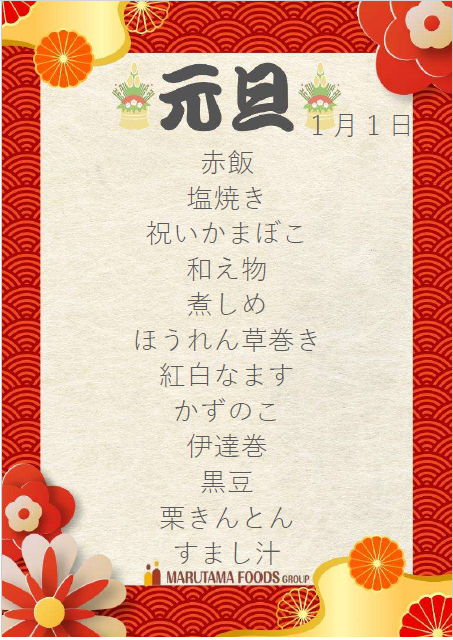 元旦
1月1日
赤飯
塩焼き
祝いかまぼこ
和え物
煮しめ
ほうれん草巻き
紅白なます
かずのこ
伊達巻
黒豆
栗きんとん
すまし汁
MARUTAMA FOODS GROUP